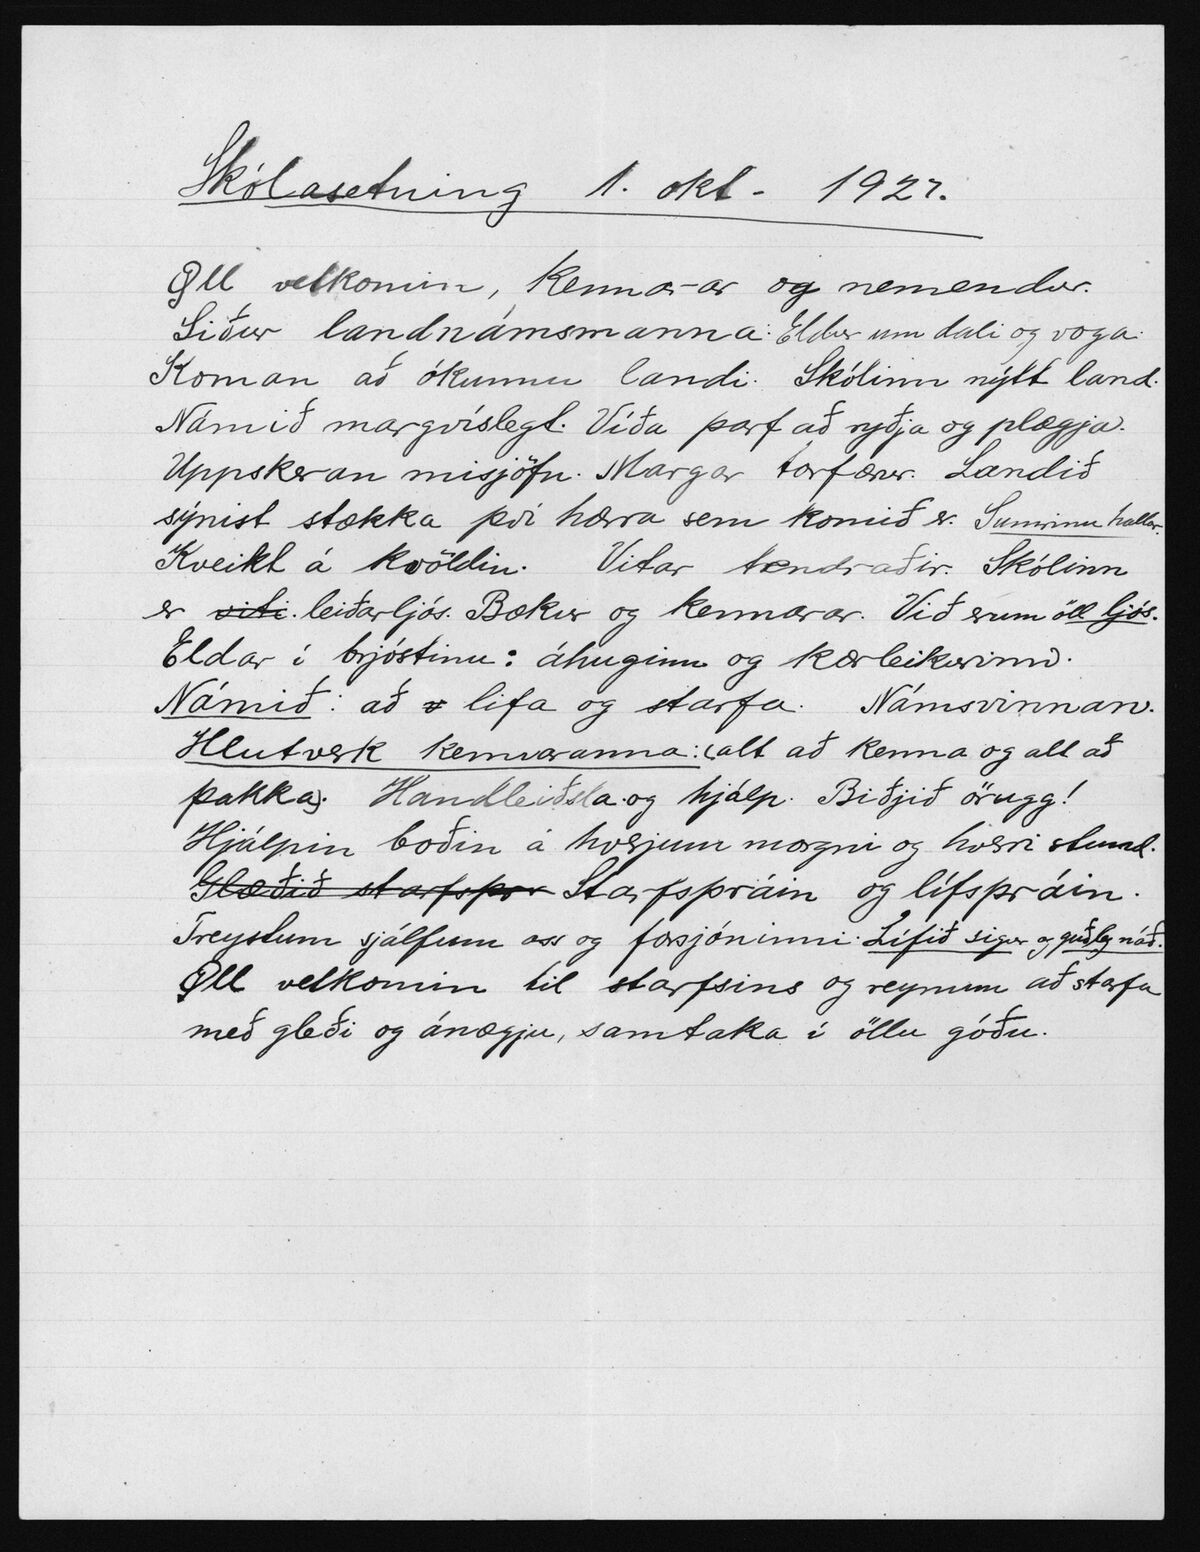 Skólasetning 1. okt - 1927.
Öll velkomin, kennarar og nemendur.
Siður landnámsmanna: Eldur um dali og voga.
Koman að ókunnu landi. Skólinn nýtt land.
Námið margvíslegt. Víða þarf að ryðja og plægja.
Uppskeran misjöfn. Margar torfærur. Landið
sýnist stækka því hærra sem komið er. Sumrinu hallar.
Kveikt á kvöldin. Vitar tendraðir. Skólinn
er viti. leiðarljós. Bækur og kennarar. Við erum öll ljós.
Eldar í brjóstinu: áhuginn og kærleikurinn.
Námið: að lifa og starfa. Námsvinnan.
Hlutverk kennaranna: (alt að kenna og alt að
þakka). Handleiðsla og hjálp. Biðjið örugg!
Hjálpin boðin á hverjum morgni og hverri stund.
Glæðið starfsþr Starfsþráin og lífsþráin.
Treystum sjálfum oss og forsjóninni. Lífið sigur og guðleg náð.
Öll velkomin til starfsins og reynum að starfa
með gleði og ánægju, samtaka í öllu góðu.